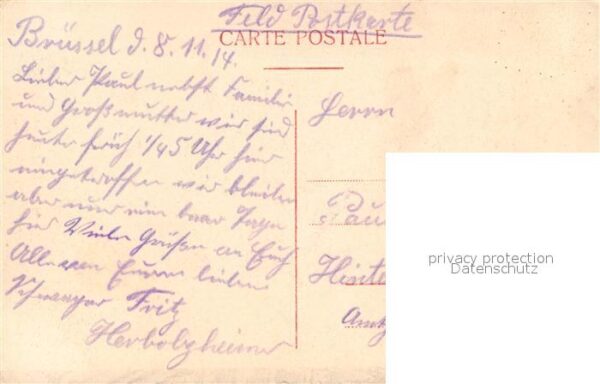 Feld Postkarte
CARTE POSTALE
Brüssel d. 8. 11. 14.
Lieber Paul nebst Familie
und Großmutter wir sind
heute früh 1/45 Uhr hier
eingetroffen wir bleiben
aber nur ein paar Tage
hier Viele Grüße an Euch
Alle von Eurem lieben
Schwager Fritz
Herbolzheimer
Herrn
Pau
Amts
privacy protection
Datenschutz